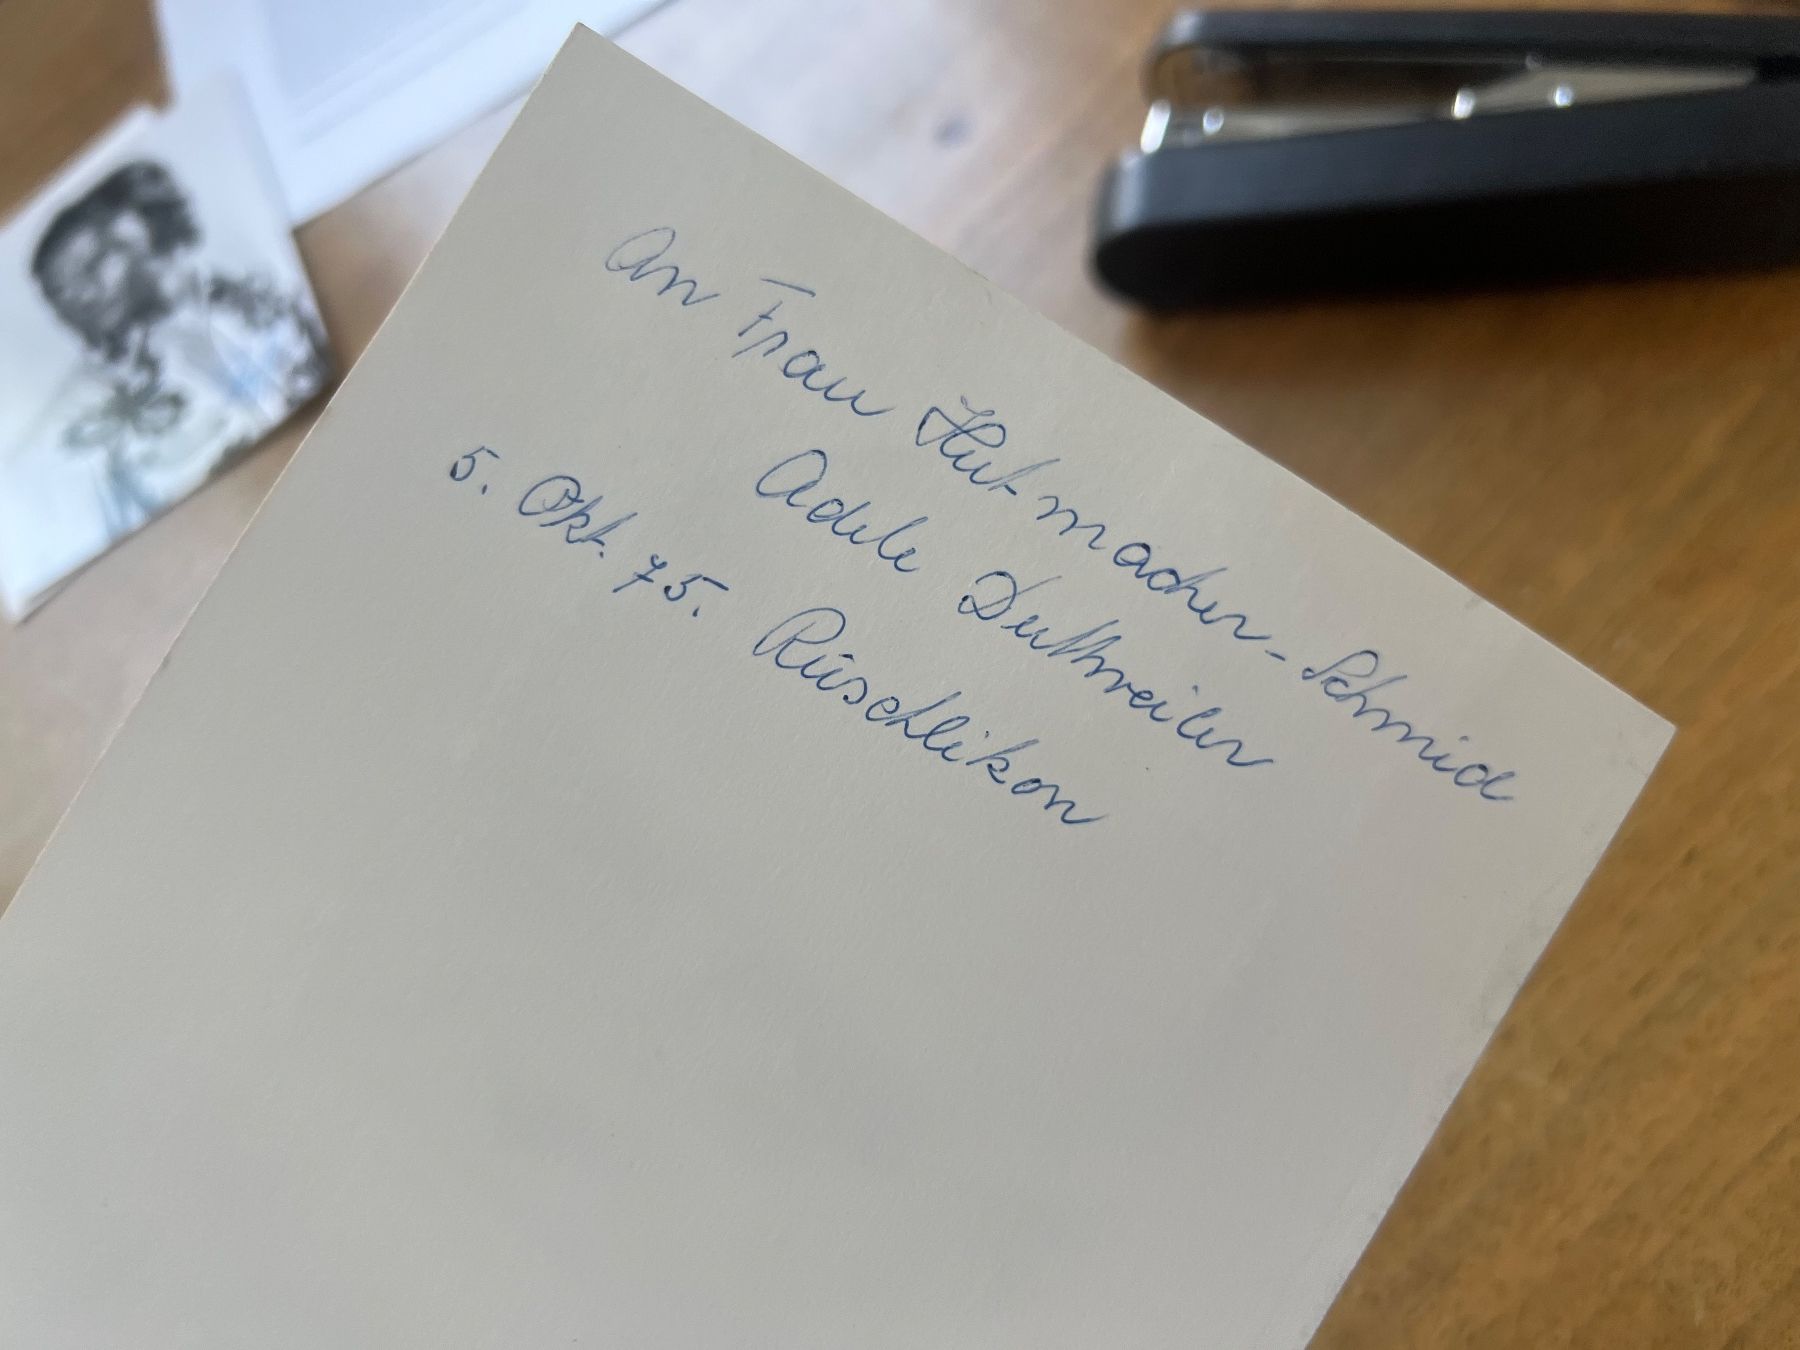 An Frau Hutmacher-Schmid
Adele Duttweiler
5. Okt. 75. Rüschlikon